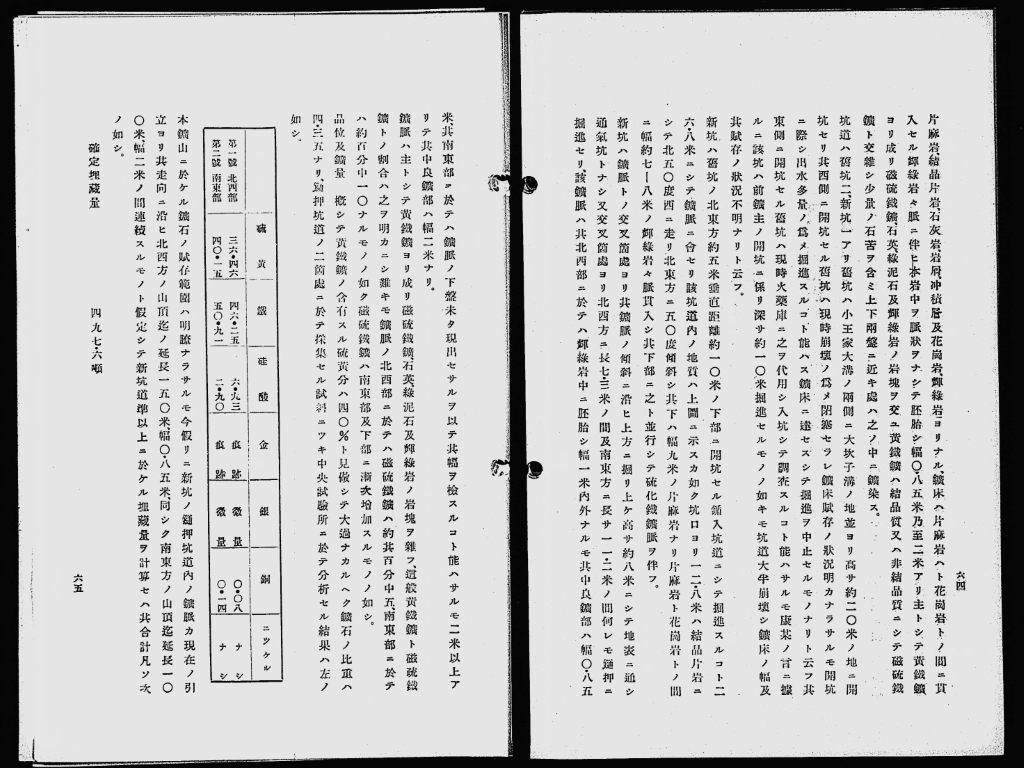 六四
片麻岩結晶片岩岩石灰岩岩屑冲積層及花崗岩輝綠岩ヨリナル、鑛床ハ片麻岩ハト花崗岩トノ間ニ貫
入セル輝綠岩々脈ニ伴ヒ本岩中ヲ脈狀ヲナシテ胚胎シ幅〇・八五米乃至二米アリ主トシテ黃鐵鑛
ヨリ成リ磁硫鐵鑛、石英、綠泥石及輝綠岩ノ岩塊ヲ交ユ黃鐵鑛ハ結晶質又ハ非結晶質ニシテ磁硫鐵
鑛ト交雜シ少量ノ石苦ヲ含ミ上下兩盤ニ近キ處ハ之ノ中ニ鑛染ス。
坑道ハ舊坑二、新坑一アリ舊坑ハ小王家大溝ノ兩側ニ大坎子溝ノ地並ヨリ高サ約二〇米ノ地ニ開
坑セリ其西側ニ開坑セル舊坑ハ現時崩壞ノ爲メ閉塞セラレ鑛床賦存ノ狀況明カナラサルモ開坑
ニ際シ出水多量ノ爲メ掘進スルコト能ハス鑛床ニ達セスシテ掘進ヲ中止セルモノナリト云フ其
東側ニ開坑セル舊坑ハ現時火藥庫ニ之ヲ代用シ入坑シテ調査スルコト能ハサルモ康某ノ言ニ據
ルニ該坑ハ前鑛主ノ開坑ニ係リ深サ約一〇米掘進セルモノノ如キモ坑道大半崩壞シ鑛床ノ幅及
其賦存ノ狀況不明ナリト云フ。
新坑ハ舊坑ノ北東方約五米垂直距離約一〇米ノ下部ニ開坑セル鑛入坑道ニシテ掘進スルコト二
六・八米ニシテ鑛脈ニ合セリ該坑道內ノ地質ハ上圖ニ示スカ如ク坑口ヨリ一二・八米ハ結晶片岩ニ
シテ北五〇度西ニ走リ北東方ニ五〇度傾斜シ其下ハ幅九米ノ片麻岩ナリ片麻岩ト花崗岩トノ間
ニ幅約七—八米ノ輝綠岩々脈貫入シ其下部ニ之ト並行シテ硫化鐵鑛脈ヲ伴フ。
新坑ハ鑛脈トノ交叉箇處ヨリ其鑛脈ノ傾斜ニ沿ヒ上方ニ掘リ上ケ高サ約八米ニシテ地表ニ通シ
通氣坑トナシ又交叉箇處ヨリ北西方ニ長七・三米ノ間及南東方ニ長サ一一・二米ノ間何レモ𨫤押ニ
掘進セリ、該鑛脈ハ其北西部ニ於テハ輝綠岩中ニ胚胎シ幅一米內外ナルモ其中良鑛部ハ幅〇・八五
米、其南東部ヲ於テハ鑛脈ノ下盤未タ現出セサルヲ以テ其幅ヲ檢スルコト能ハサルモ二米以上ア
リテ其中良鑛部ハ幅二米ナリ。
鑛脈ハ主トシテ黃鐵鑛ヨリ成リ磁硫鐵鑛、石英、綠泥石及輝綠岩ノ岩塊ヲ雜フ、這般黃鐵鑛ト磁硫鐵
鑛トノ割合ハ之ヲ明カニシ難キモ鑛脈ノ北西部ニ於テハ磁硫鐵鑛ハ約其百分中五、南東部ニ於テ
ハ約百分中一〇ナルモノノ如ク磁硫鐵鑛ハ南東部及下部ニ漸次增加スルモノノ如シ。
品位及鑛量　槪シテ黃鐵鑛ノ含有スル硫黃分ハ四〇%ト見做シテ大過ナカルヘク鑛石ノ比重ハ
四・三五ナリ、𨫤押坑道ノ二箇處ニ於テ採集セル試料ニツキ中央試驗所ニ於テ分析セル結果ハ左ノ
如シ。
硫黃　鐵　硅酸　金　銀　銅　ニツケル
第一號 北西部　三六・四六　四六・二五　六・九三　痕跡　微量　〇・〇八　ナシ
第二號 南東部　四〇・一五　五〇・九一　二・九〇　痕跡　微量　〇・一四　ナシ
本鑛山ニ於ケル鑛石ノ賦存範圍ハ明瞭ナラサルモ今假リニ新坑ノ𨫤押坑道內ノ鑛脈カ現在ノ引
立ヨリ其走向ニ沿ヒ北西方ノ山頂迄ノ延長一五〇米、幅〇・八五米、同シク南東方ノ山頂迄延長一〇
〇米、幅二米ノ間連續スルモノト假定シテ新坑道準以上ニ於ケル埋藏量ヲ計算セハ其合計凡ソ次
ノ如シ。
確定埋藏量　四九七・六噸
六五